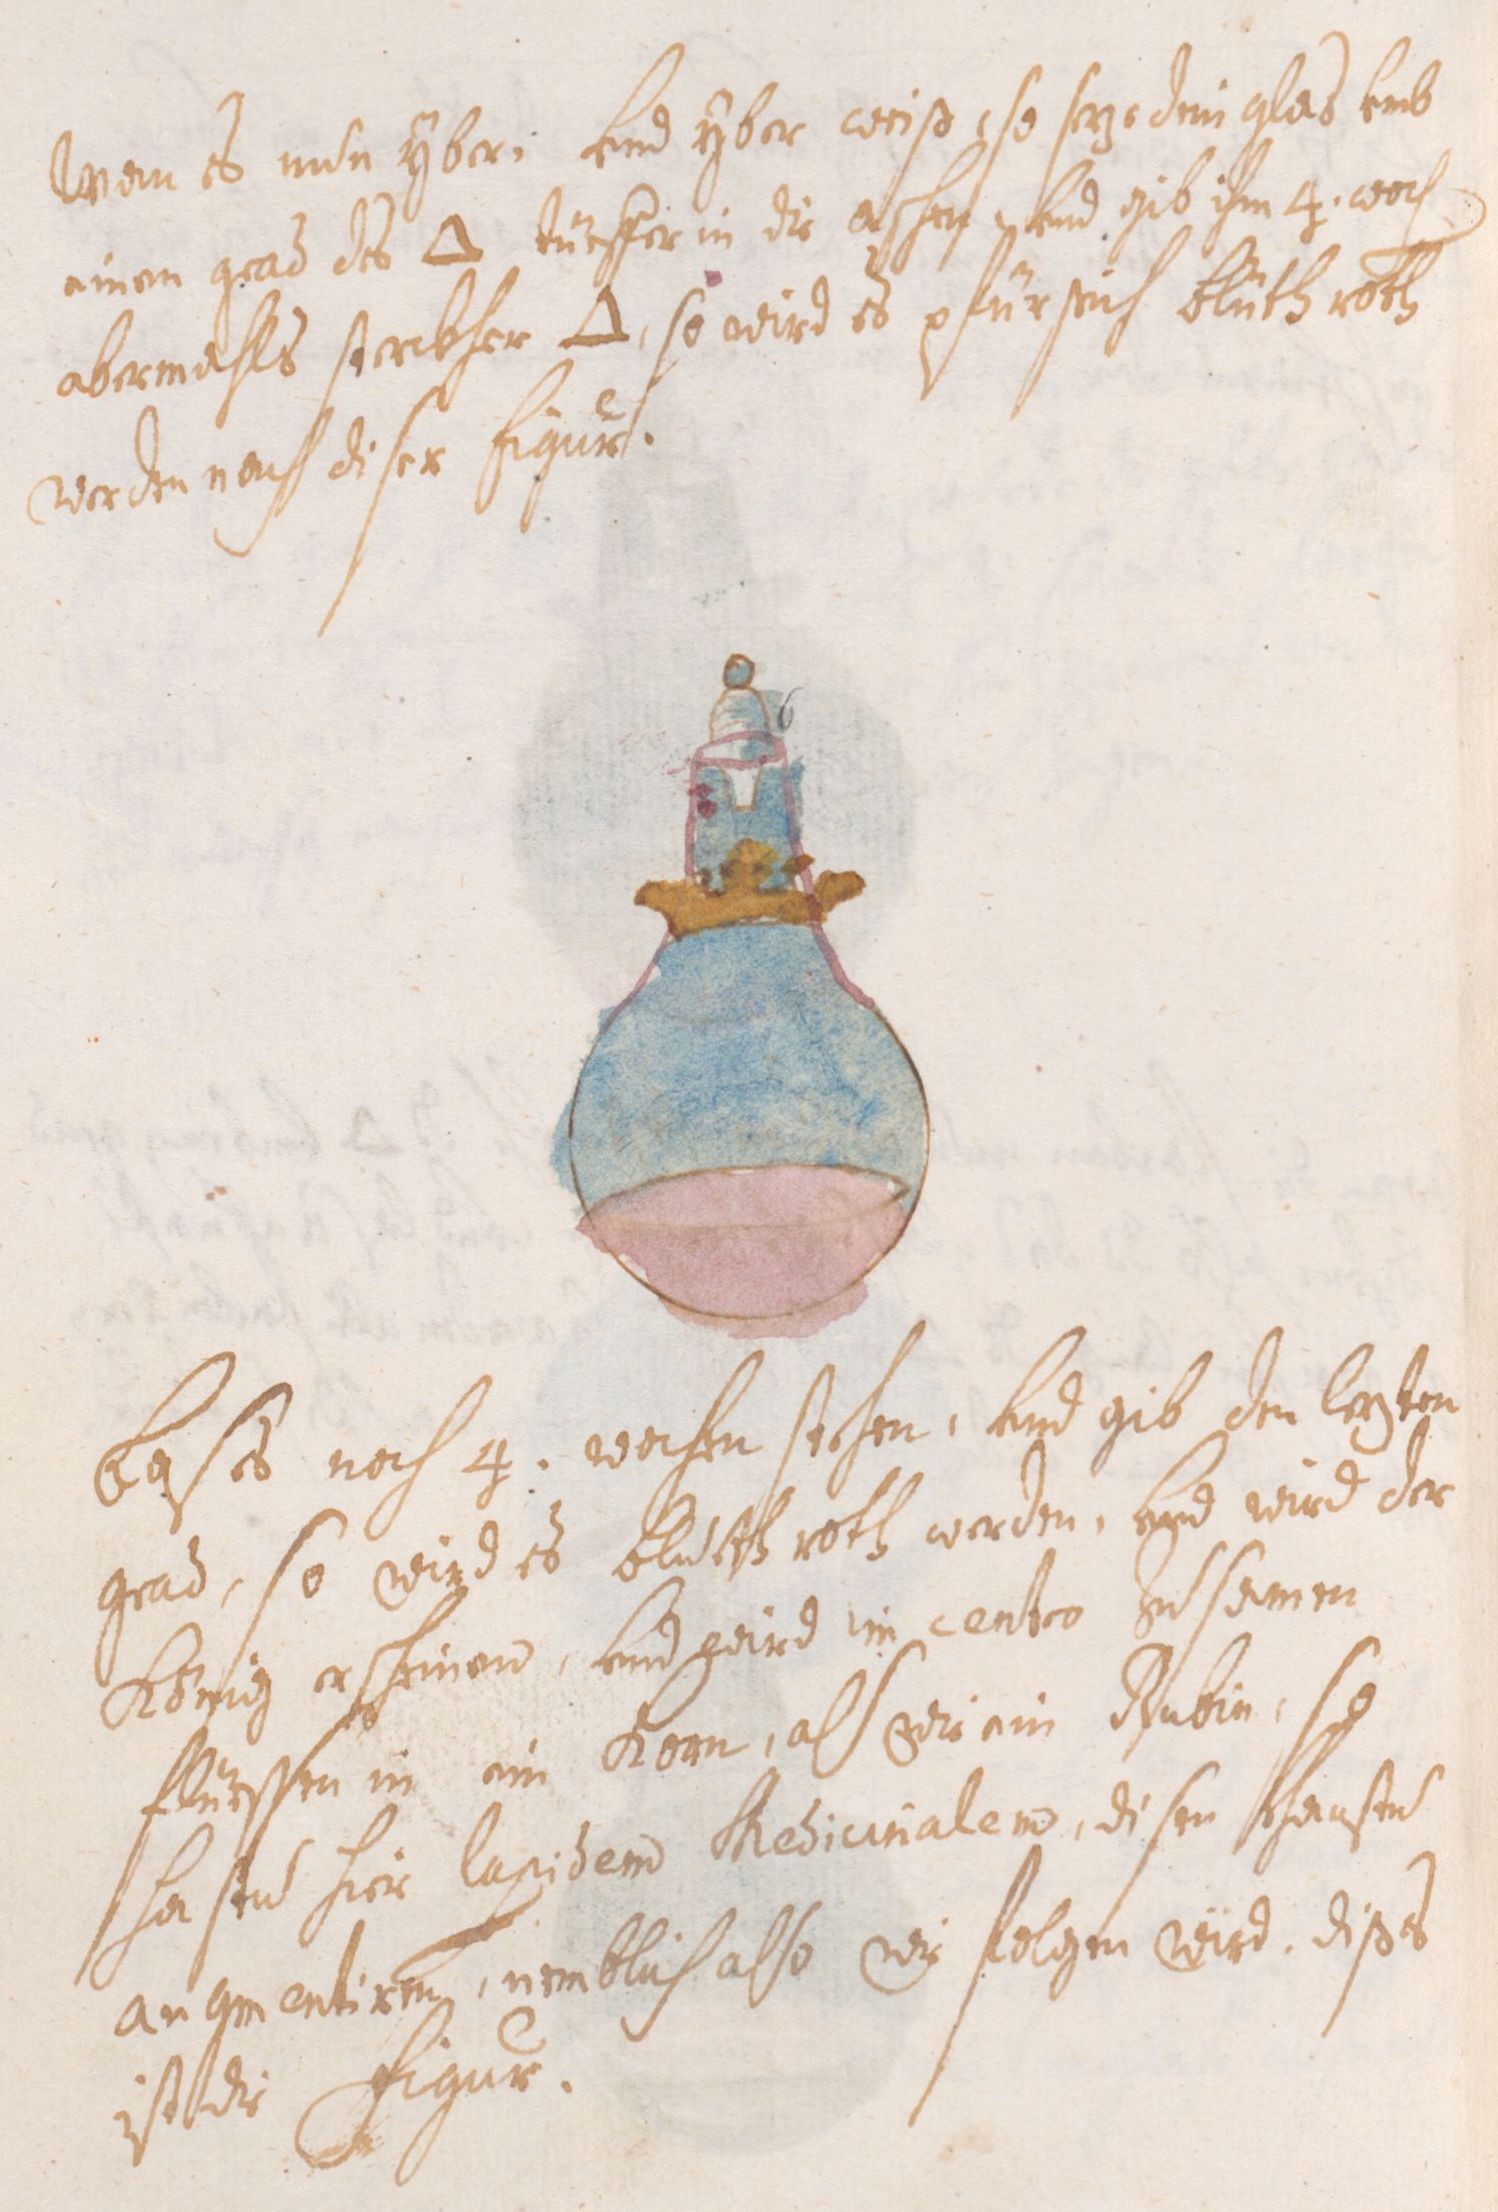 Wan es nun yber: und yber weiß, so seze dein glas umb
einen grad des 🜂 tüeffer in die aschen, und gib ihm 4. woch
abermahls sterckher 🜂, so wird es pfürsich blüth roth
werden nach diser figur.
6
Laß es noch 4. wochen stehen, und gib den lezten
grad, so wird es bluth roth werden, und wird der
König erscheinen, und wird in centro zusamen
flüessen in ein Korn, alß wie ein Rubin, so
hastu hier lapidem Medicinalem, disen khanstu
augmentiren, nemblich also wie folgen wird. dißes
ist die figur.